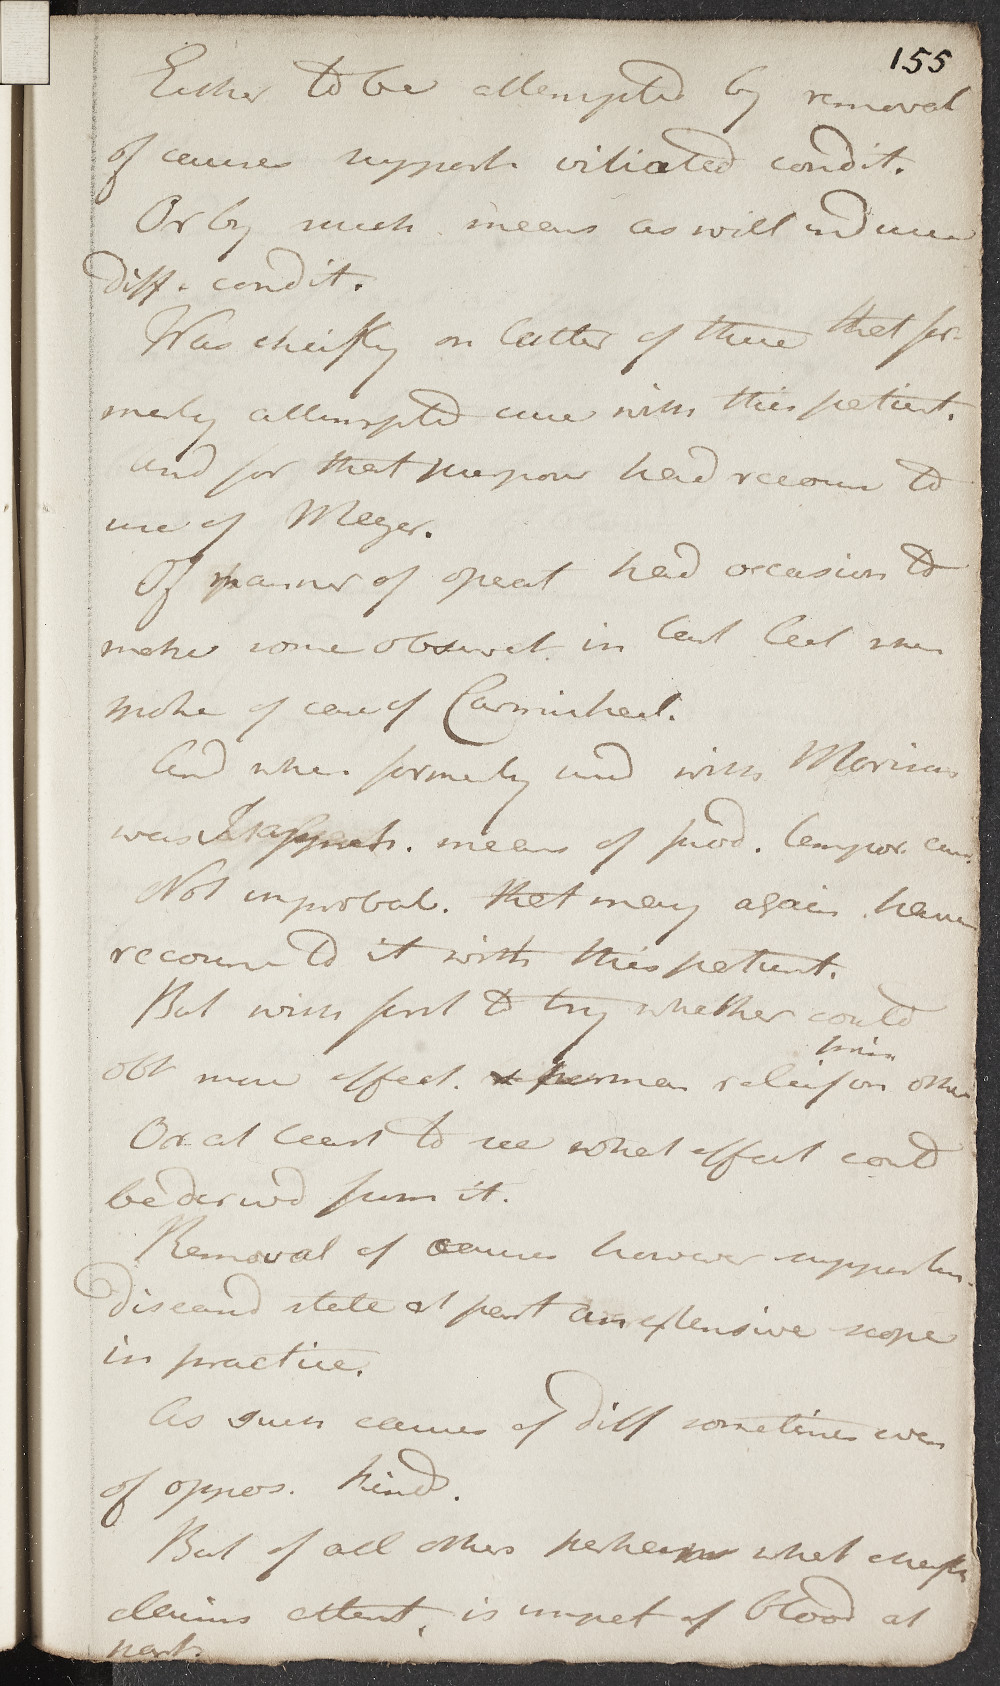 155
Either to be attempted by removal
of causes support. vitiated condit.
Or by such means as will induce
diff. condit.
Was cheifly on latter of these that for-
merly attempted cure with this patient.
And for that purpose had recourse to
use of Mezer.
Of manner of operat had occasion to
make some observat. in last Lect when
spoke of case of Carmichael.
And when formerly used with Morison
was apparent. means of prod. tempor. cure.
Not improbab. that may again have
recourse to it with this patient.
But wish first to try whether could
from
obt more effect. & perman releif on other
Or at least to see what effect could
be deriv'd from it.
Removal of causes however supportin.
diseased state at part an extensive scope
in practice.
As such causes of diff sometimes even
of oppos. kinds.
But of all others perhaps what cheifly
claims attent. is impet of blood at
part.